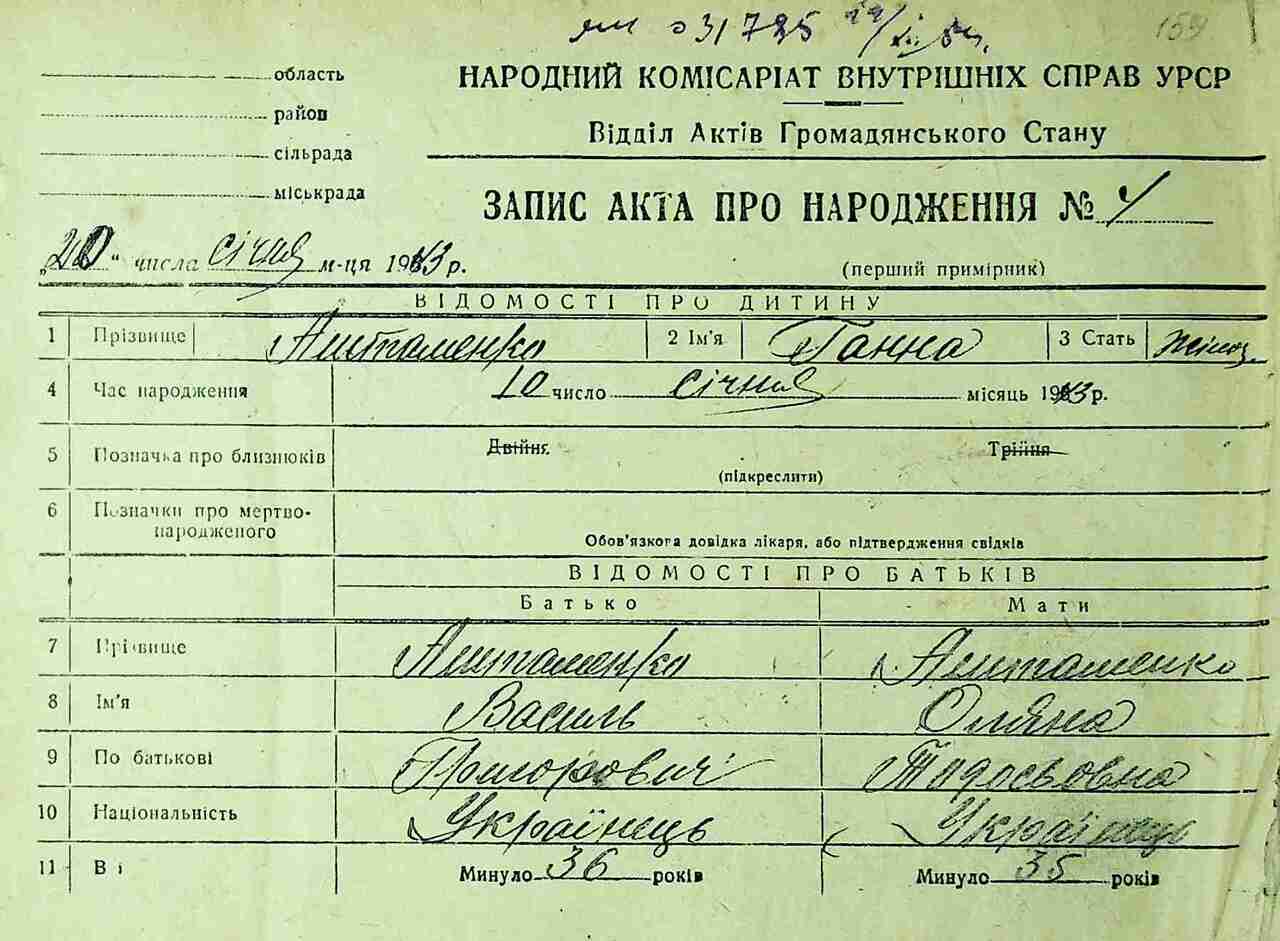 031725
159
область
НАРОДНИЙ КОМІСАРІАТ ВНУТРІШНІХ СПРАВ УРСР
район
Відділ Актів Громадянського Стану
сільрада
міськрада
ЗАПИС АКТА ПРО НАРОДЖЕННЯ №
„20“ числа січня м-ця 1943 р.
(перший примірник)
ВІДОМОСТІ ПРО ДИТИНУ
1 Прізвище 2 Ім'я Ганна 3 Стать жіноч.
4 Час народження 10 число січня місяць 1943 р.
5 Позначка про близнюків Двійня Трійня
(підкреслити)
6 Позначки про мертво-
народженого
Обов'язкова довідка лікаря, або підтвердження свідків
ВІДОМОСТІ ПРО БАТЬКІВ
Батько Мати
7 Прізвище
8 Ім'я Василь Оляна
9 По батькові Григорович Тодосьовна
10 Національність Українець Українець
11 Вік Минуло 36 років Минуло 35 років